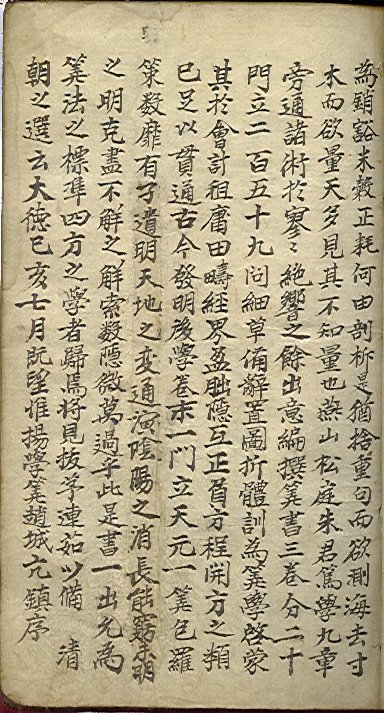 為銷豁未穀正耗何由剖析是猶捨重句而欲測海去寸
木而欲量天多見其不知量也燕山松庭朱君篤學九章
旁通諸術於寥〻絶響之餘出意編撰筭書三卷分二十
門立二百五十九问細草俻辭置圖折體訓為筭學啓蒙
其於會計租庸田疇經界盈朒隱互正負方程開方之類
巳足以貫通古今發明後學卷末一門立天元一筭包羅
策数靡有孑遺明天地之变通演陰陽之消長能窮未明
之明克盡不觧之觧索数隐微莫過乎此是書一出允為
筭法之標準四方之學者歸焉将見抜茅連茹以備 清
朝之選云大徳巳亥七月旣望惟揚學筭趙城元鎮序